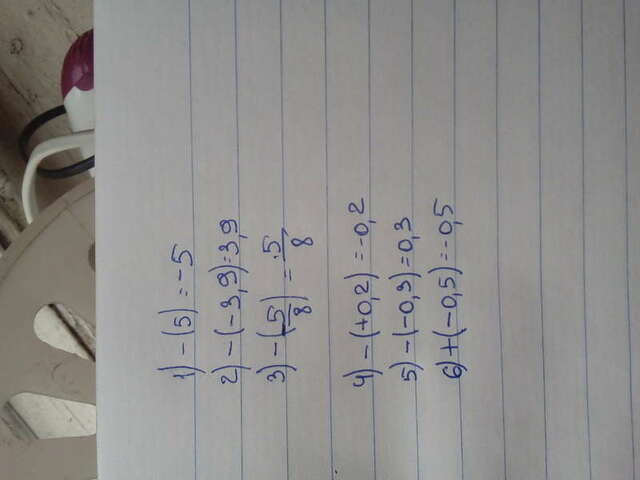 1) - (5) = -5
2) - (-3,9) = 3,9
3) - (-5/8) = 5/8
4) - (+0,2) = -0,2
5) - (-0,3) = 0,3
6) + (-0,5) = -0,5